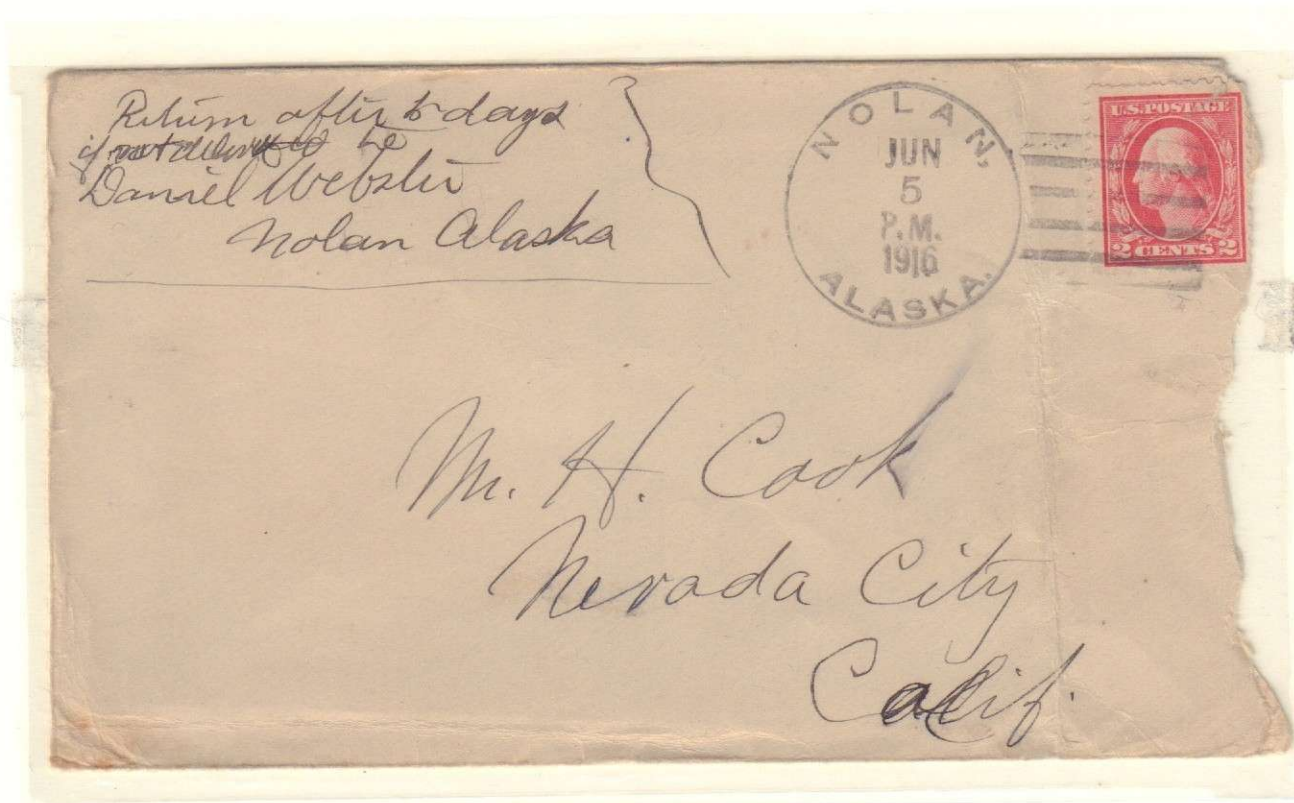 Return after 5 days
if not delivered to
Daniel Webster
Nolan Alaska
NOLAN,
JUN
5
P.M.
1916
ALASKA.
U.S. POSTAGE
2 CENTS 2
Mr. H. Cook
Nevada City
Calif.